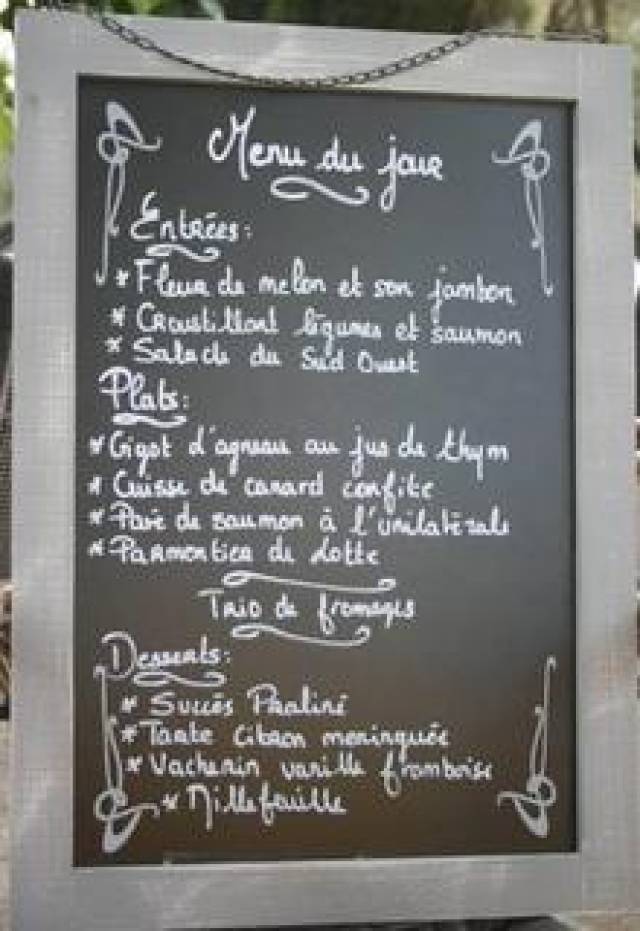 Menu du jour
Entrées:
* Fleur de melon et son jambon
* Croustillant légumes et saumon
* Salade du Sud Ouest
Plats:
* Gigot d'agneau au jus de thym
* Cuisse de canard confite
* Pavé de saumon à l'unilatérale
* Parmentier de Lotte
Trio de fromages
Desserts:
* Succés Praliné
* Tarte Citron meringuée
* Vacherin vanille framboise
* Millefeuille